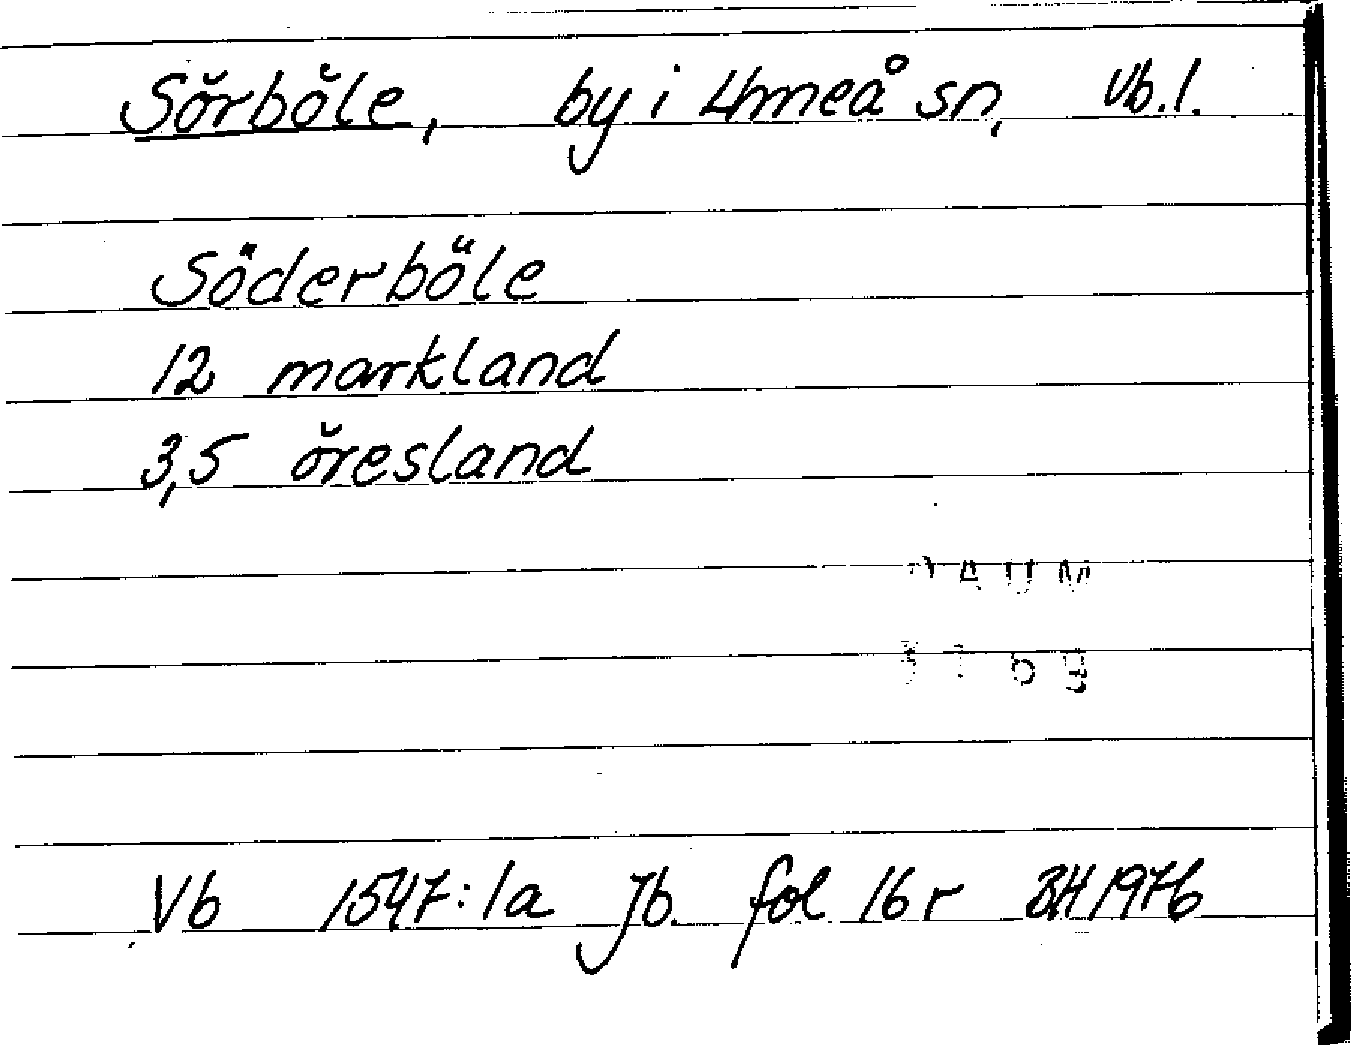 Sörböle, by i Umeå sn, Vb.l.
Söderböle
12 markland
3,5 öresland
DAUM
Vb 1547:1a Jb. fol 16 r BH 1976